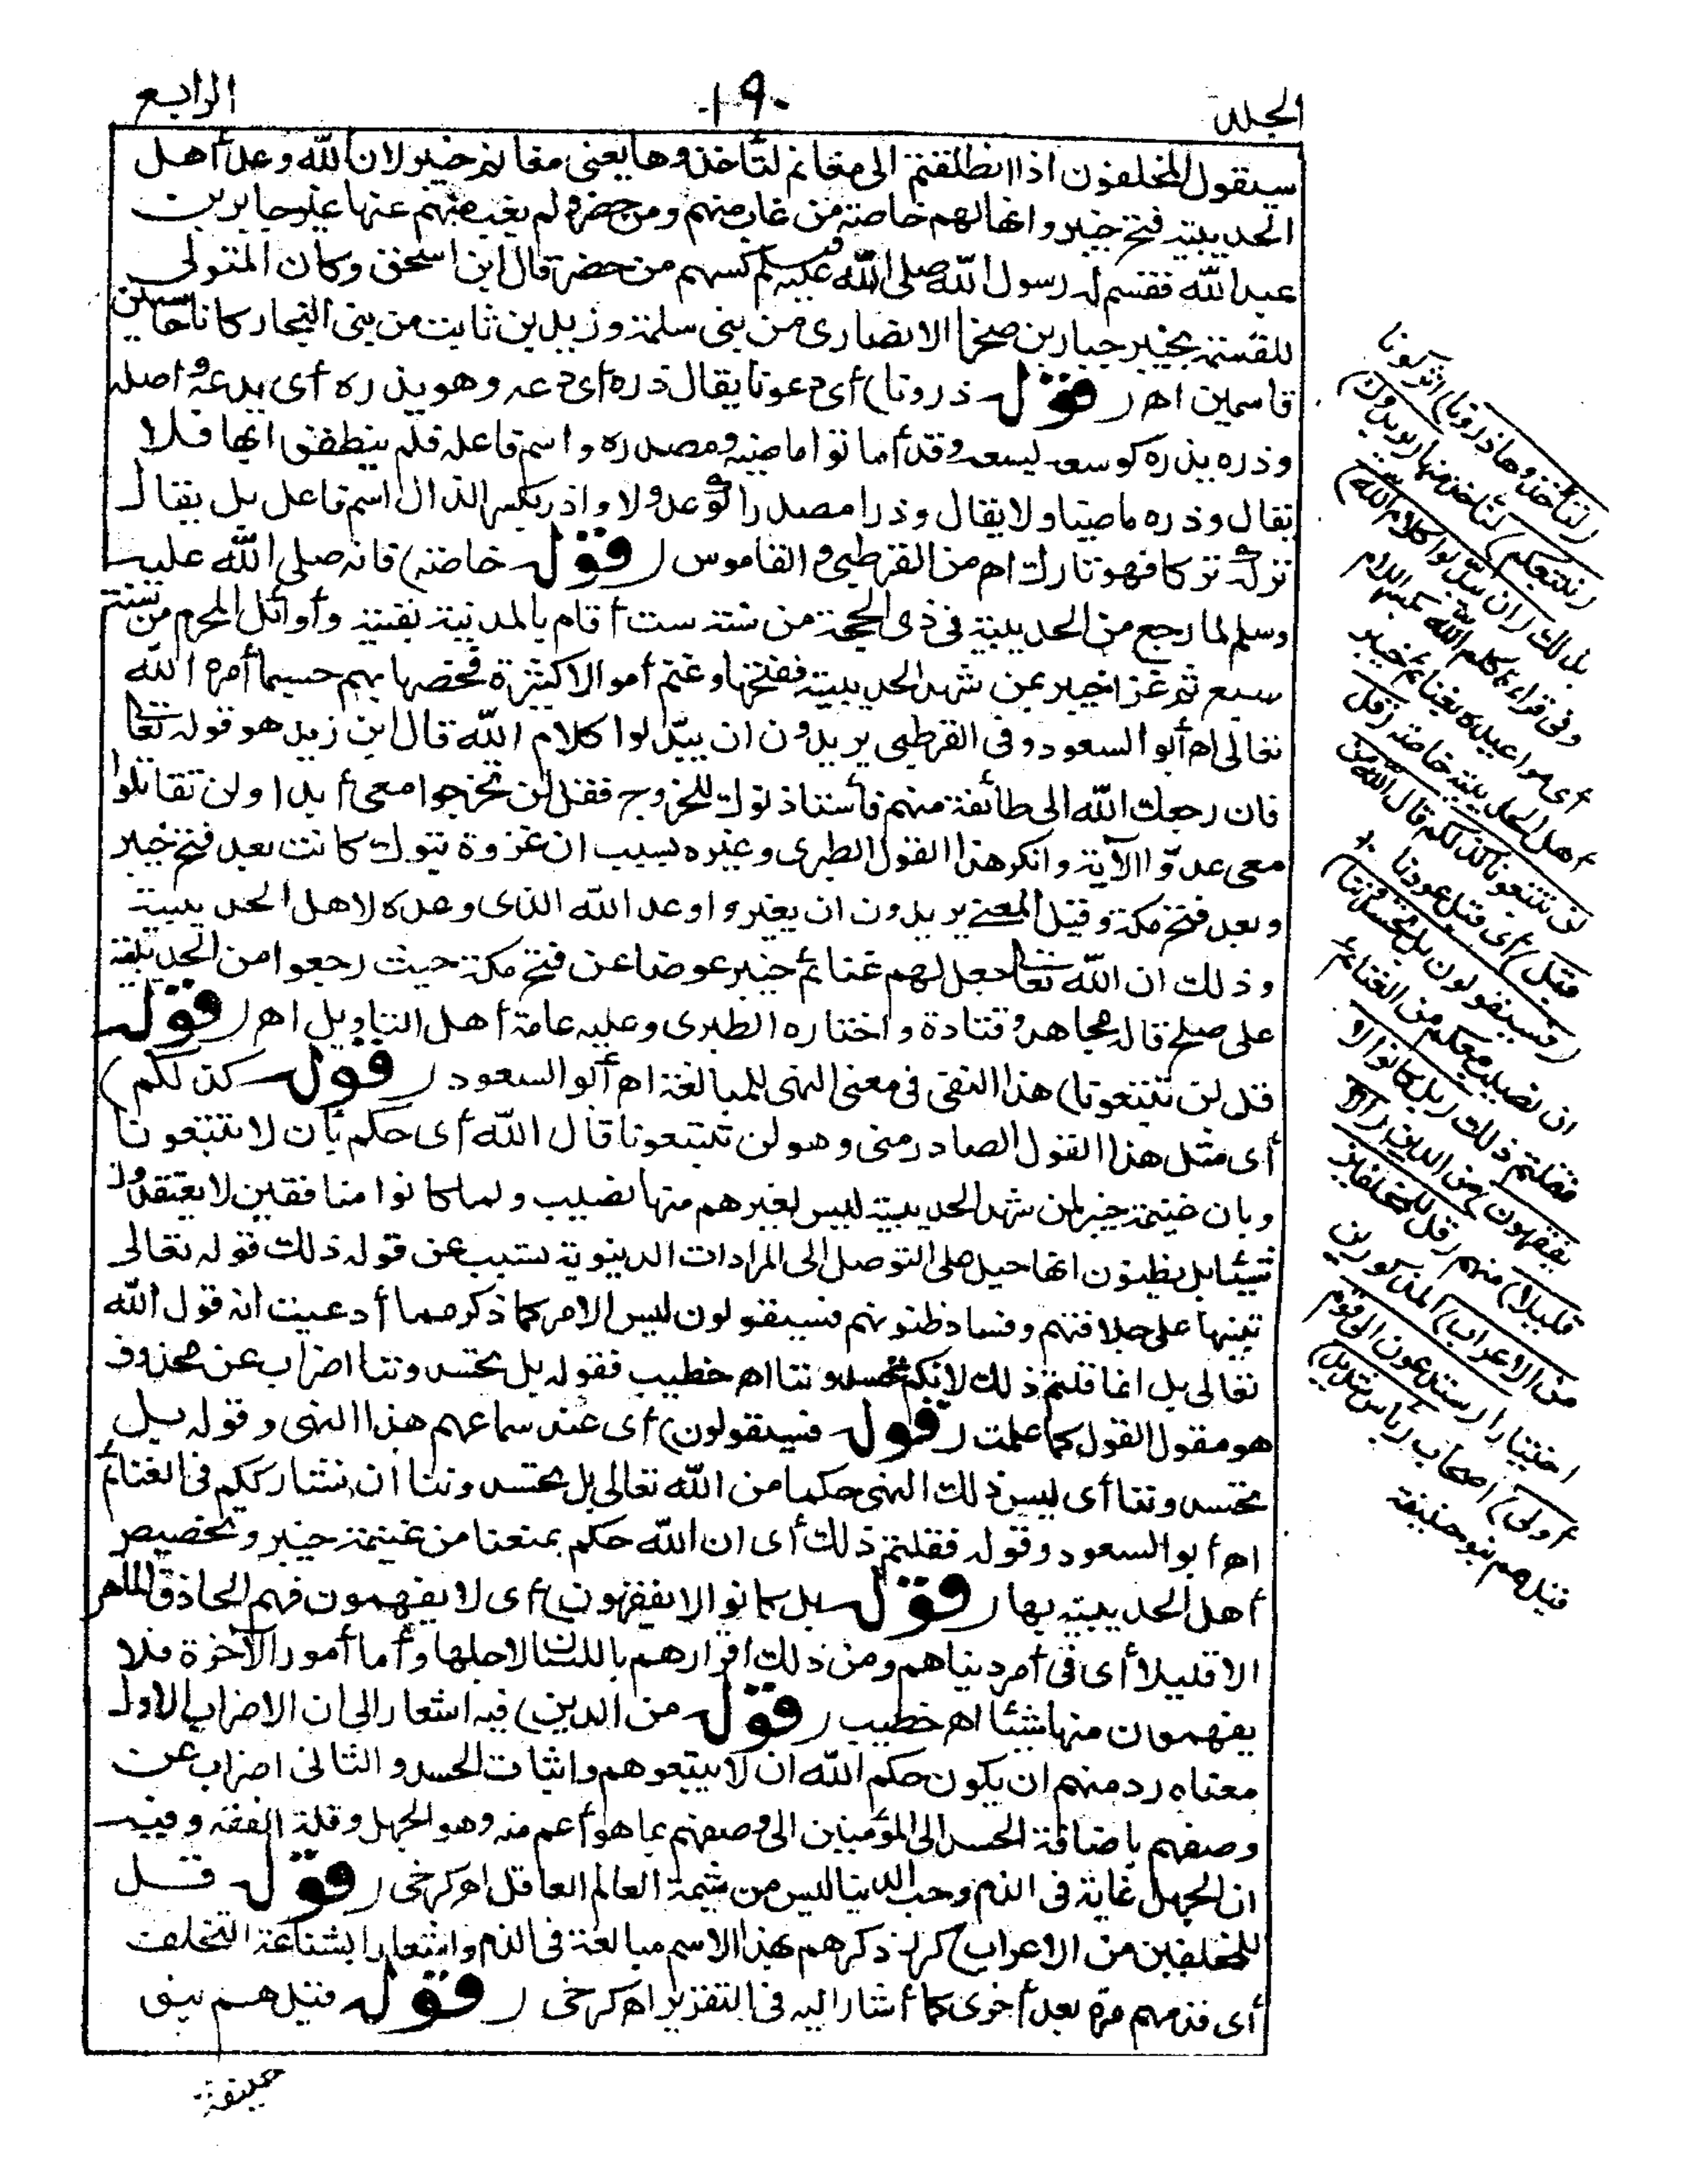 المجلد
١٩٠
الرابع
سيقول المخلفون اذا انطلقتم الى مغانم لتأخذوها يعنى مغانم خيبر لان الله وعد أهل
الحديبية فتح خيبر وانها لهم خاصة من غاب منهم ومن حضر ولم يغب منهم عنها غير جابر بن
عبد الله فقسم له رسول الله صلى الله عليه وسلم كسهم من حضر قال ابن اسحق وكان المتولى
للقسمة بخيبر جبار بن صخر الانصارى من بنى سلمة وزيد بن ثابت من بنى النجار كانا حاسبين
قاسمين اهـ (قوله ذرونا) أى دعونا يقال ذره أى دعه وهو يذره أى يدعه وأصله
وذره يذره كوسعه يسعه وقد أماتوا ماضيه ومصدره واسم فاعله فلم ينطقوا بها فلا
يقال وذره ماضيا ولا يقال وذرا مصدرا كوعد ولا واذر بكسر الذال اسم فاعل بل يقال
تركه تركا فهو تارك اهـ من القرطبى والقاموس (قوله خاصة) فانه صلى الله عليه
وسلم لما رجع من الحديبية فى ذى الحجة من سنة ست أقام بالمدينة بقيته وأوائل المحرم من سنة
سبع ثم غزا خيبر بمن شهد الحديبية ففتحها وغنم أموالا كثيرة فخصها بهم حسبما أمره الله
تعالى اهـ أبو السعود وفى القرطبى يريدون ان يبدلوا كلام الله قال ابن زيد هو قوله تعالى
فان رجعك الله الى طائفة منهم فاستأذنوك للخروج فقل لن تخرجوا معى أبدا ولن تقاتلوا
معى عدوا الآية وانكر هذا القول الطبرى وغيره بسبب ان غزوة تبوك كانت بعد فتح خيبر
وبعد فتح مكة وقيل المعنى يريدون ان يغيروا وعد الله الذى وعده لاهل الحديبية
وذلك ان الله تعالى جعل لهم غنائم خيبر عوضا عن فتح مكة حيث رجعوا من الحديبية
على صلح قاله مجاهد وقتادة واختاره الطبرى وعليه عامة أهل التأويل اهـ (قوله
قل لن تتبعونا) هذا النفى فى معنى النهى للمبالغة اهـ أبو السعود (قوله كذلكم)
أى مثل هذا القول الصادر منى وهو لن تتبعونا قال الله أى حكم بأن لا تتبعونا
وبان غنيمة خيبر لمن شهد الحديبية ليس لغيرهم منها نصيب ولما كانوا منافقين لا يعتقدون
شيئا بل يظنون انها حيل على التوصل الى المرادات الدنيوية تسبب عن قوله ذلك قوله تعالى
تنبيها على جلافتهم وفساد ظنونهم فسيقولون ليس الامر كما ذكر مما أدعيت انه قول الله
تعالى بل انما قلتم ذلك لانكم تحسدوننا اهـ خطيب فقوله بل تحسدوننا اضراب عن محذوف
هو مقول القول كما علمت (قوله فسيقولون) أى عند سماعهم هذا النهى وقوله بل
تحسدوننا أى ليس ذلك النهى حكما من الله تعالى بل تحسدوننا ان نشارككم فى الغنائم
اهـ أبو السعود وقوله فقلتم ذلك أى ان الله حكم بمنعنا من غنيمة خيبر وتخصيص
أهل الحديبية بها (قوله بل كانوا لا يفقهون) أى لا يفهمون فهم الحاذق الماهر
الا قليلا أى فى أمر دنياهم ومن ذلك اقرارهم باللسان لاجلها وأما أمور الآخرة فلا
يفهمون منها شيئا اهـ خطيب (قوله من الدين) فيه اشعار الى ان الاضراب الاول
معناه رد منهم ان يكون حكم الله ان لا يتبعوهم واثبات الحسد والثانى اضراب عن
وصفهم باضافة الحسد الى المؤمنين الى وصفهم بما هو أعم منه وهو الجهل وقلة الفقه وفيه
ان الجهل غاية فى الذم وحب الدنيا ليس من شيمة العالم العاقل اهـ كرخى (قوله قل
للمخلفين من الاعراب) كرر ذكرهم بهذا الاسم مبالغة فى الذم واشعارا بشناعة التخلف
أى فذمهم مرة بعد أخرى كما أشار اليه فى التقرير اهـ كرخى (قوله قيل هم بنو
حنيفة
(لتأخذوها ذرونا) اتركونا
(نتبعكم) لنأخذ منها (يريدون)
بذلك (ان يبدلوا كلام الله)
وفى قراءة كلم الله بكسر اللام
أى مواعيده بغنائم خيبر
أهل الحديبية خاصة (قل
لن تتبعونا كذلكم قال الله من
قبل) أى قبل عودنا
(فسيقولون بل تحسدوننا)
ان نصيب معكم من الغنائم
فقلتم ذلك (بل كانوا لا
يفقهون) من الدين (الا
قليلا) منهم (قل للمخلفين
من الاعراب) المذكورين
اختبارا (ستدعون الى قوم
أولى) اصحاب (بأس شديد)
قيل هم بنو حنيفة